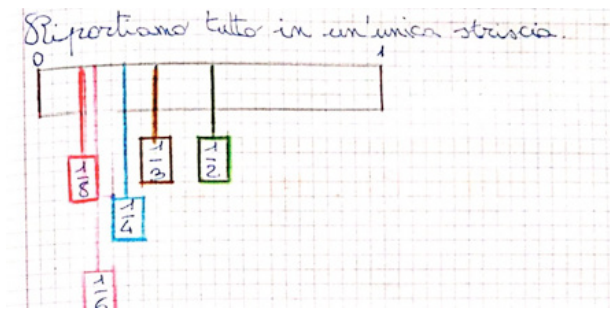 Riportiamo tutto in un'unica striscia.
0 1
1/8 1/3 1/2
1/4
1/6